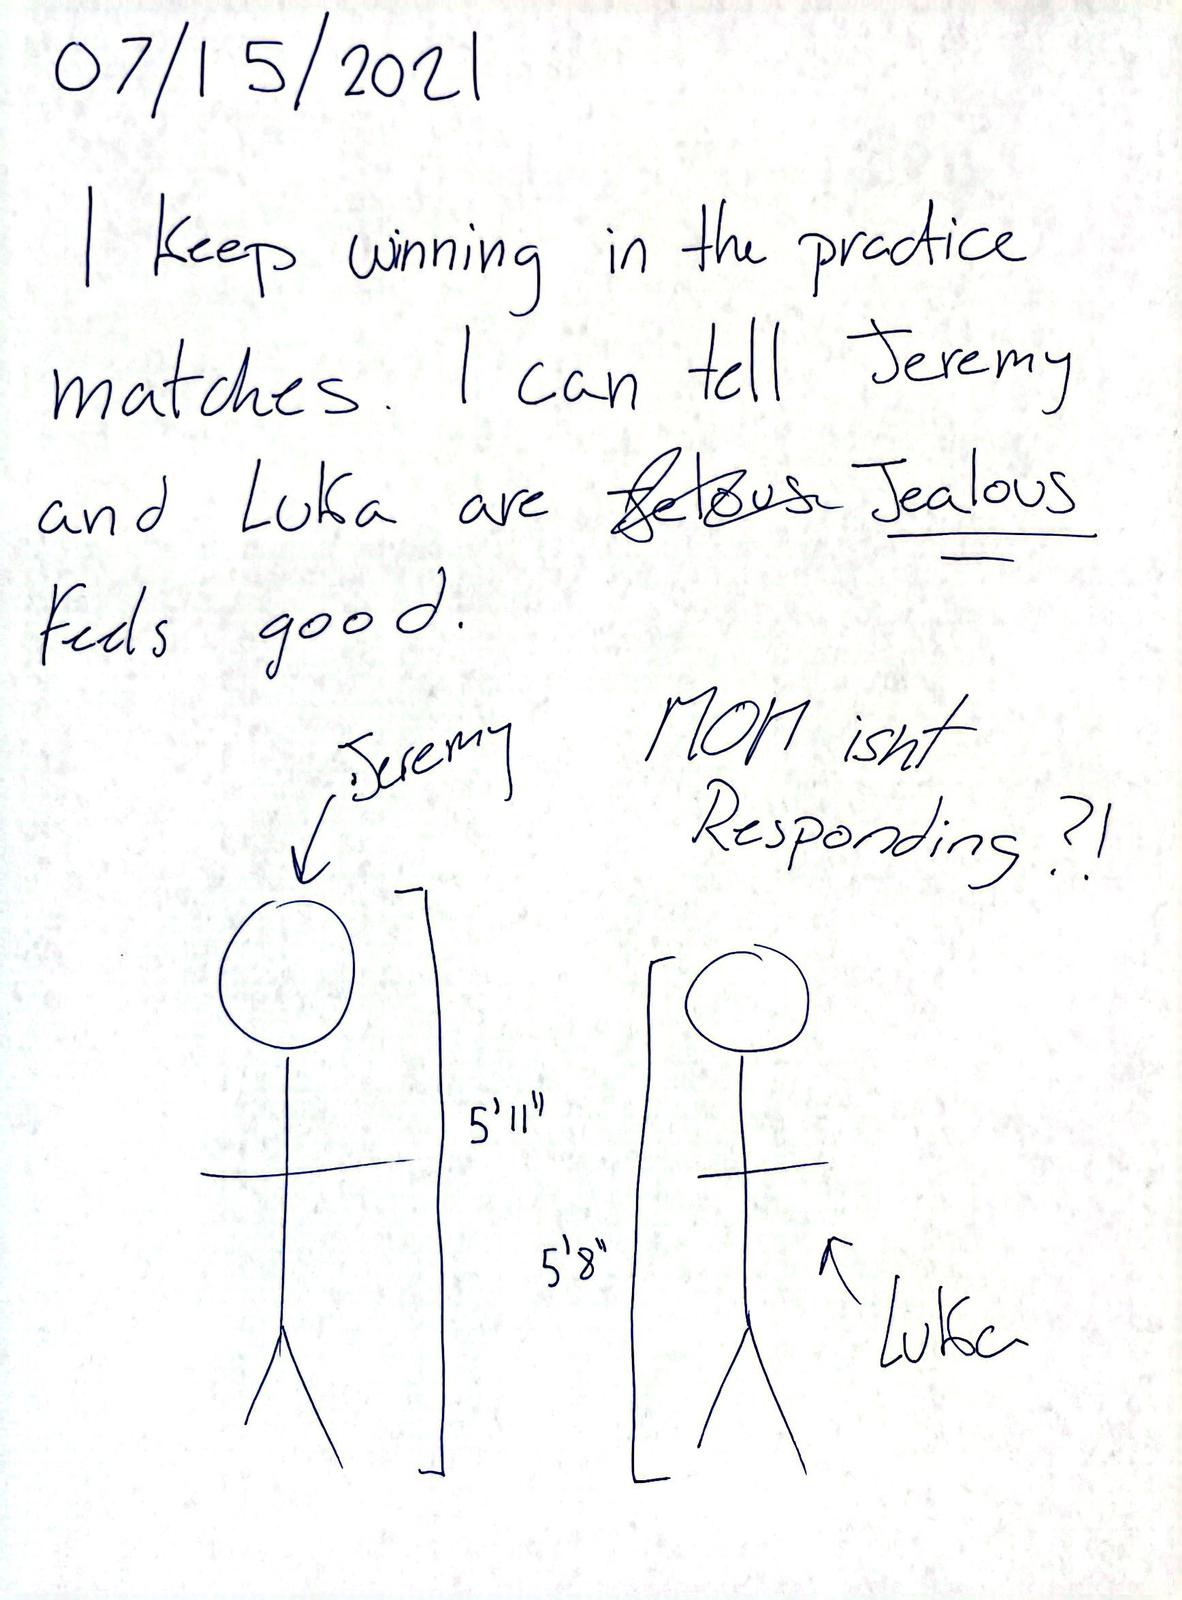 07/15/2021
I Keep winning in the practice
matches. I can tell Jeremy
and Luka are Jealous
Feels good.
Jeremy
MOM isnt
Responding?!
5'11"
5'8"
Luka